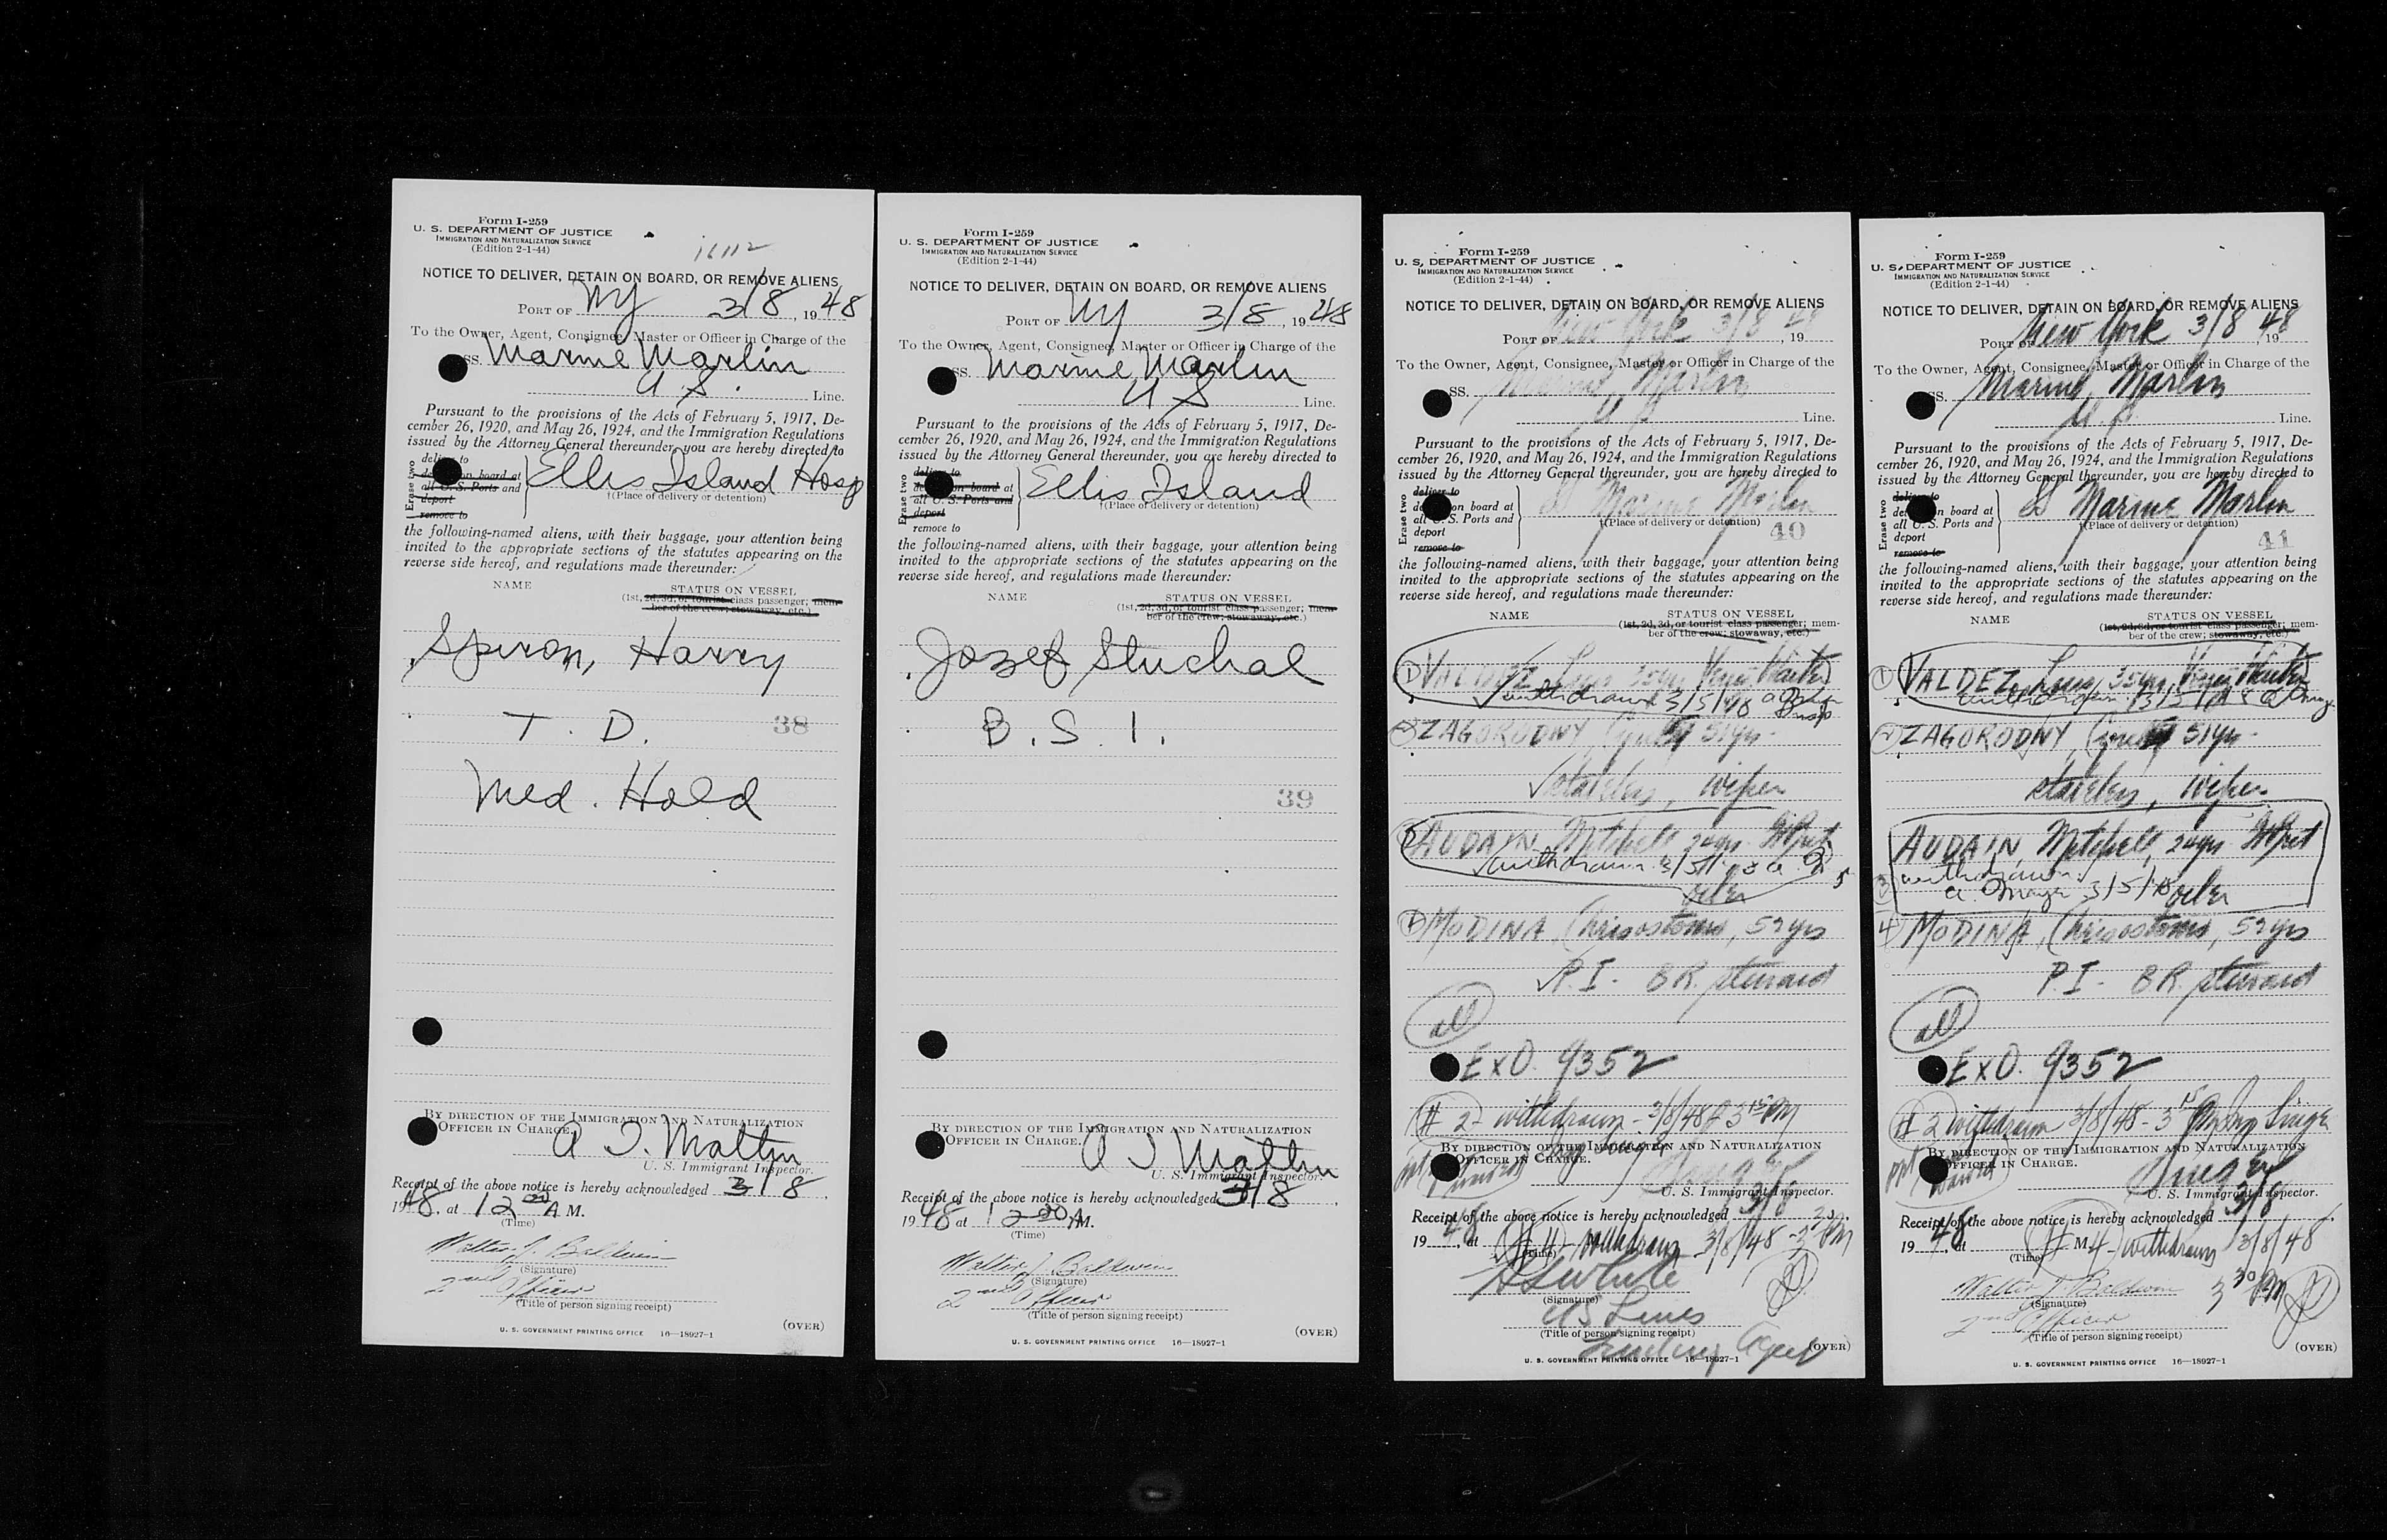 Form I-259
U. S. DEPARTMENT OF JUSTICE
IMMIGRATION AND NATURALIZATION SERVICE
(Edition 2-1-44)
16112
NOTICE TO DELIVER, DETAIN ON BOARD, OR REMOVE ALIENS
PORT OF NY 3/8, 1948
To the Owner, Agent, Consignee, Master or Officer in Charge of the
SS. Marine Marlin
U S Line.
Pursuant to the provisions of the Acts of February 5, 1917, De-
cember 26, 1920, and May 26, 1924, and the Immigration Regulations
issued by the Attorney General thereunder, you are hereby directed to
Erase two
deliver to
on board at
all U. S. Ports and
deport
remove to
Ellis Island Hosp
†(Place of delivery or detention)
the following-named aliens, with their baggage, your attention being
invited to the appropriate sections of the statutes appearing on the
reverse side hereof, and regulations made thereunder:
NAME STATUS ON VESSEL
(1st, 2d, 3d, or tourist class passenger; mem-
ber of the crew; stowaway, etc.)
Spiron, Harry
T. D. 38
Med. Hold
BY DIRECTION OF THE IMMIGRATION AND NATURALIZATION
OFFICER IN CHARGE.
U. S. Immigrant Inspector.
Receipt of the above notice is hereby acknowledged 3/8,
1948, at 12 00 A M.
(Time)
Walter J. Baldwin
(Signature)
2nd Officer
(Title of person signing receipt)
(OVER)
U. S. GOVERNMENT PRINTING OFFICE 16—18927-1
Form I-259
U. S. DEPARTMENT OF JUSTICE
IMMIGRATION AND NATURALIZATION SERVICE
(Edition 2-1-44)
NOTICE TO DELIVER, DETAIN ON BOARD, OR REMOVE ALIENS
PORT OF NY 3/8, 1948
To the Owner, Agent, Consignee, Master or Officer in Charge of the
SS. Marine Marlin
U S Line.
Pursuant to the provisions of the Acts of February 5, 1917, De-
cember 26, 1920, and May 26, 1924, and the Immigration Regulations
issued by the Attorney General thereunder, you are hereby directed to
Erase two
deliver to
on board at
all U. S. Ports and
deport
remove to
Ellis Island
†(Place of delivery or detention)
the following-named aliens, with their baggage, your attention being
invited to the appropriate sections of the statutes appearing on the
reverse side hereof, and regulations made thereunder:
NAME STATUS ON VESSEL
(1st, 2d, 3d, or tourist class passenger; mem-
ber of the crew; stowaway, etc.)
Jozef Stuchal
B. S. I.
39
BY DIRECTION OF THE IMMIGRATION AND NATURALIZATION
OFFICER IN CHARGE.
U. S. Immigrant Inspector.
Receipt of the above notice is hereby acknowledged 3/8,
1948 at 12 00 A M.
(Time)
Walter J. Baldwin
(Signature)
2nd Officer
(Title of person signing receipt)
(OVER)
U. S. GOVERNMENT PRINTING OFFICE 16—18927-1
Form I-259
U. S. DEPARTMENT OF JUSTICE
IMMIGRATION AND NATURALIZATION SERVICE
(Edition 2-1-44)
NOTICE TO DELIVER, DETAIN ON BOARD, OR REMOVE ALIENS
PORT OF New York 3/8 48, 19
To the Owner, Agent, Consignee, Master or Officer in Charge of the
SS. Marine Marlin
U S Line.
Pursuant to the provisions of the Acts of February 5, 1917, De-
cember 26, 1920, and May 26, 1924, and the Immigration Regulations
issued by the Attorney General thereunder, you are hereby directed to
Erase two
deliver to
on board at
all U. S. Ports and
deport
remove to
SS Marine Marlin
†(Place of delivery or detention)
40
the following-named aliens, with their baggage, your attention being
invited to the appropriate sections of the statutes appearing on the
reverse side hereof, and regulations made thereunder:
NAME STATUS ON VESSEL
(1st, 2d, 3d, or tourist class passenger; mem-
ber of the crew; stowaway, etc.)
1 VALDEZ, Luis, 35yrs
withdrawn 3/5/48
2 ZAGORODNY 51yrs
wiper
3 AUDAIN, Mitchell
withdrawn 3/5/48
oiler
4 MODINA, Chrisostomo, 52yrs
P.I. - BR. steward
all
EXO. 9352
# 2 - withdrawn - 3/8/48 3 15 PM
BY DIRECTION OF THE IMMIGRATION AND NATURALIZATION
OFFICER IN CHARGE.
U. S. Immigrant Inspector.
Receipt of the above notice is hereby acknowledged 3/8
1948, at
# 4 - withdrawn 3/8/48 - 3 30 PM
(Time)
(Signature)
US Lines
(Title of person signing receipt)
(OVER)
U. S. GOVERNMENT PRINTING OFFICE 16—18927-1
Form I-259
U. S. DEPARTMENT OF JUSTICE
IMMIGRATION AND NATURALIZATION SERVICE
(Edition 2-1-44)
NOTICE TO DELIVER, DETAIN ON BOARD, OR REMOVE ALIENS
PORT OF New York 3/8 48, 19
To the Owner, Agent, Consignee, Master or Officer in Charge of the
SS. Marine Marlin
U S Line.
Pursuant to the provisions of the Acts of February 5, 1917, De-
cember 26, 1920, and May 26, 1924, and the Immigration Regulations
issued by the Attorney General thereunder, you are hereby directed to
Erase two
deliver to
on board at
all U. S. Ports and
deport
remove to
SS Marine Marlin
†(Place of delivery or detention)
41
the following-named aliens, with their baggage, your attention being
invited to the appropriate sections of the statutes appearing on the
reverse side hereof, and regulations made thereunder:
NAME STATUS ON VESSEL
(1st, 2d, 3d, or tourist class passenger; mem-
ber of the crew; stowaway, etc.)
1 VALDEZ, Luis, 35yrs
withdrawn 3/5/48
2 ZAGORODNY 51yrs
wiper
3 AUDAIN, Mitchell
withdrawn
3/5/48 oiler
4 MODINA, Chrisostomo, 52yrs
P.I - BR. steward
all
EXO. 9352
# 2 withdrawn 3/8/48 - 3 15 PM
BY DIRECTION OF THE IMMIGRATION AND NATURALIZATION
OFFICER IN CHARGE.
U. S. Immigrant Inspector.
Receipt of the above notice is hereby acknowledged 3/8
1948, at M.
# 4 - withdrawn 3/8/48
(Time)
3 30 PM
Walter J. Baldwin
(Signature)
2nd Officer
(Title of person signing receipt)
(OVER)
U. S. GOVERNMENT PRINTING OFFICE 16—18927-1